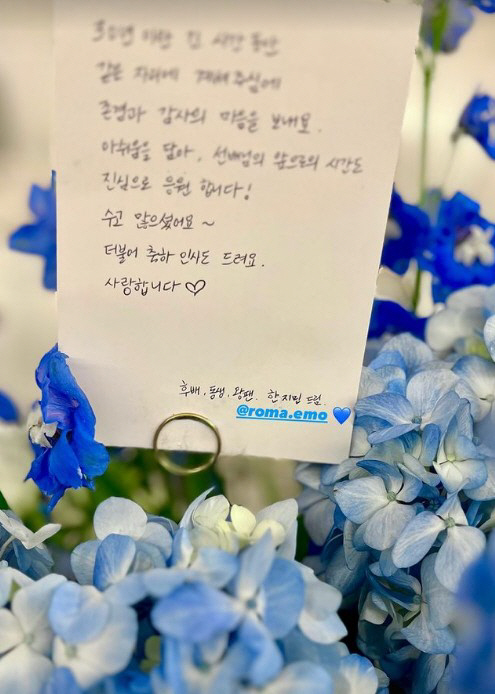 30년 이란 긴 시간 동안
같은 자리에 계셔주심에
존경과 감사의 마음을 보내요.
아쉬움을 담아, 선배님의 앞으로의 시간도
진심으로 응원 합니다!
수고 많으셨어요~
더불어 축하 인사도 드려요.
사랑합니다♡
후배, 동생, 왕팬. 한지민 드림.
@roma.emo 💙